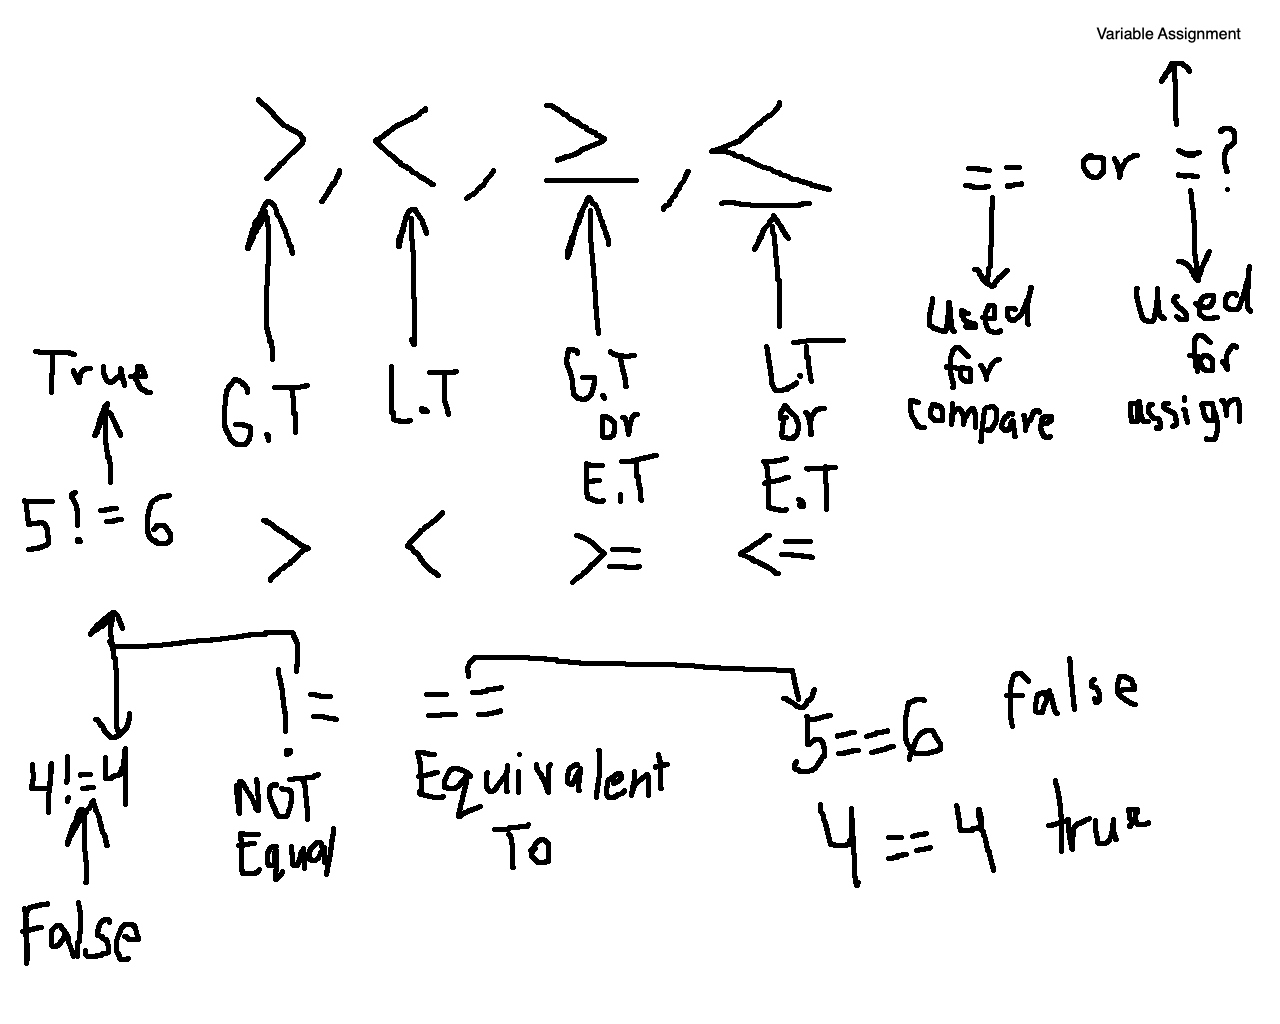 Variable Assignment
>, <, ≥, ≤
== or =?
G.T
L.T
G.T
or
E.T
L.T
or
E.T
used
for
compare
used
for
assign
> < >= <=
True
5!=6
4!=4
False
!=
NOT
Equal
==
Equivalent
To
5==6 false
4==4 true